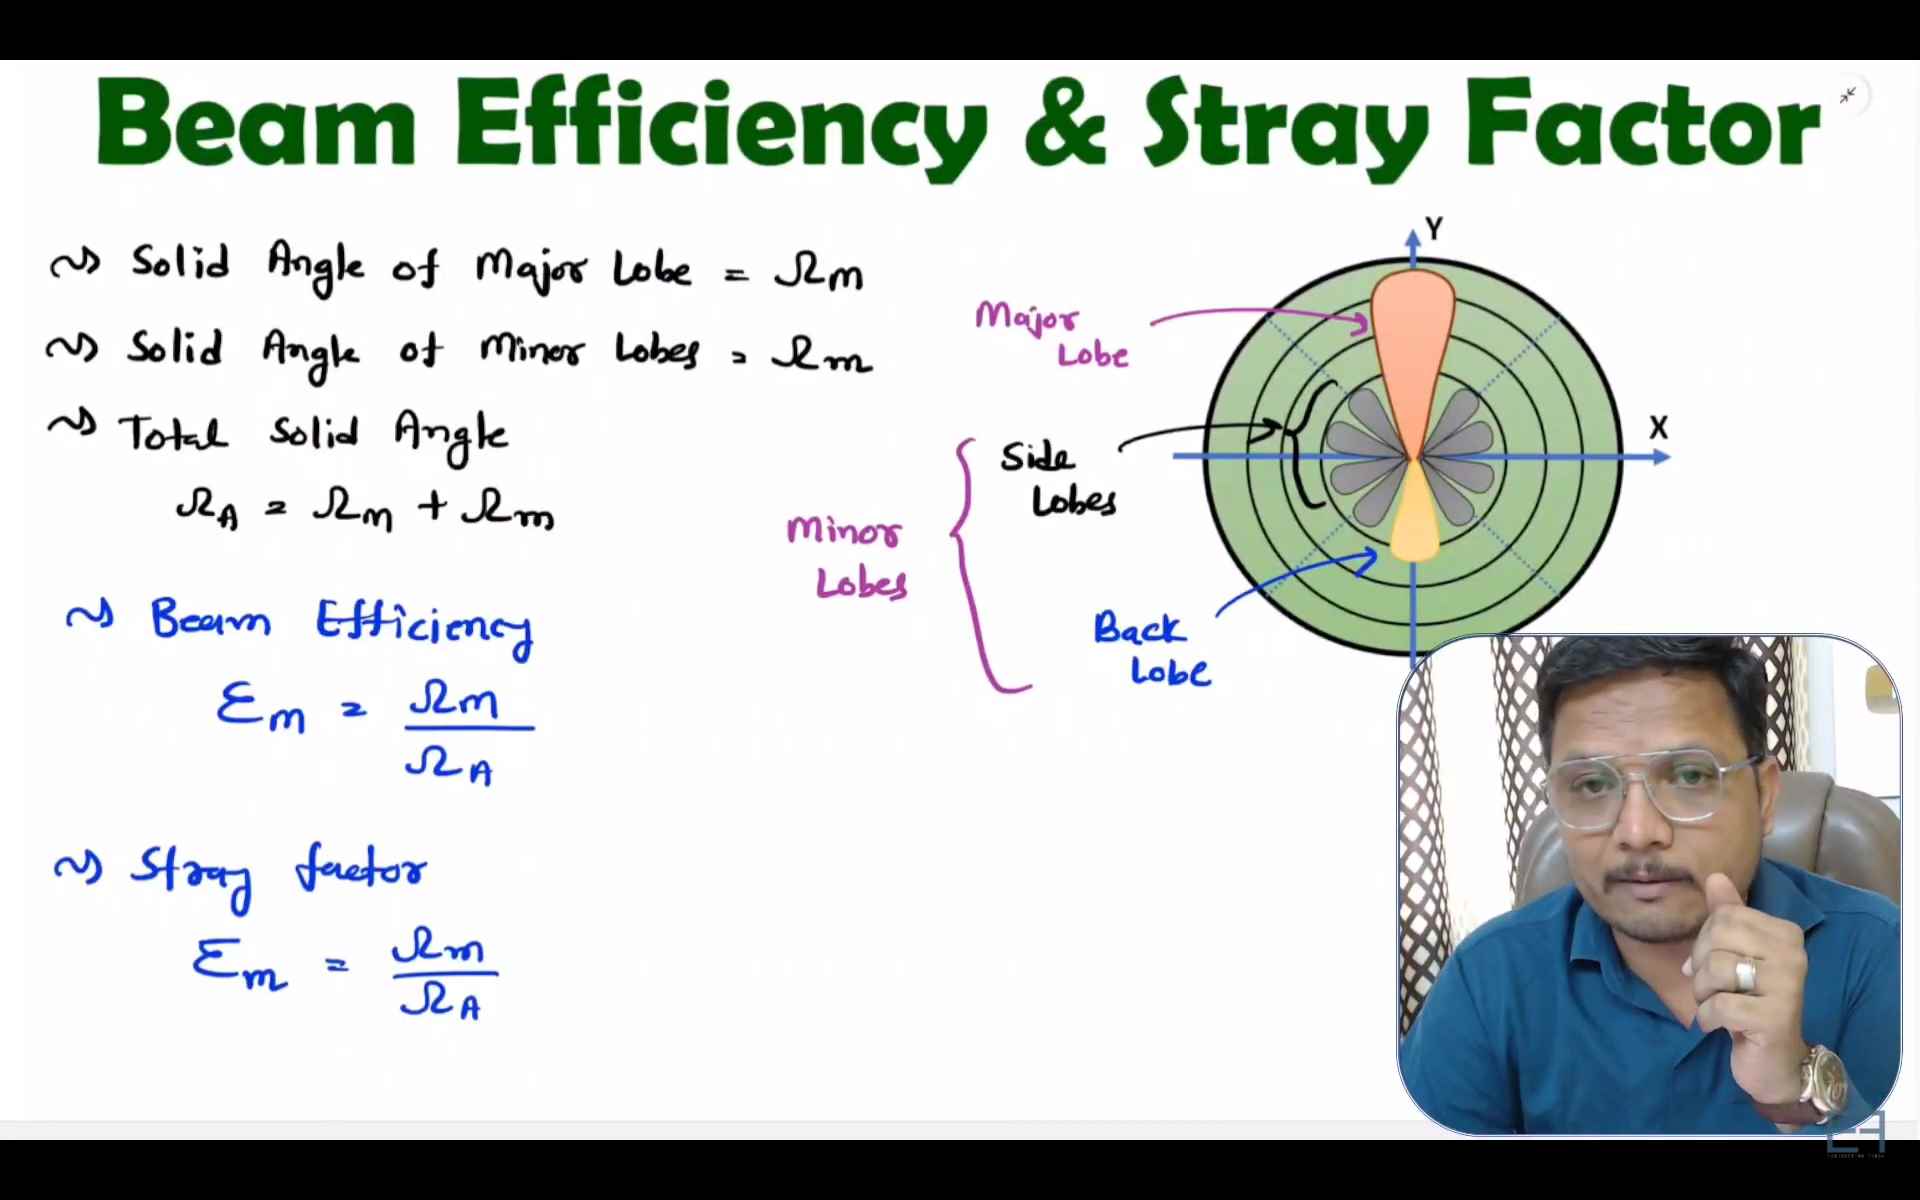 Beam Efficiency & Stray Factor
~> Solid Angle of Major Lobe = ΩM
~> Solid Angle of Minor Lobes = Ωm
~> Total Solid Angle
ΩA = ΩM + Ωm
~> Beam Efficiency
εM = ΩM / ΩA
~> Stray factor
εm = Ωm / ΩA
Y
X
Major
Lobe
Side
Lobes
Minor
Lobes
Back
Lobe